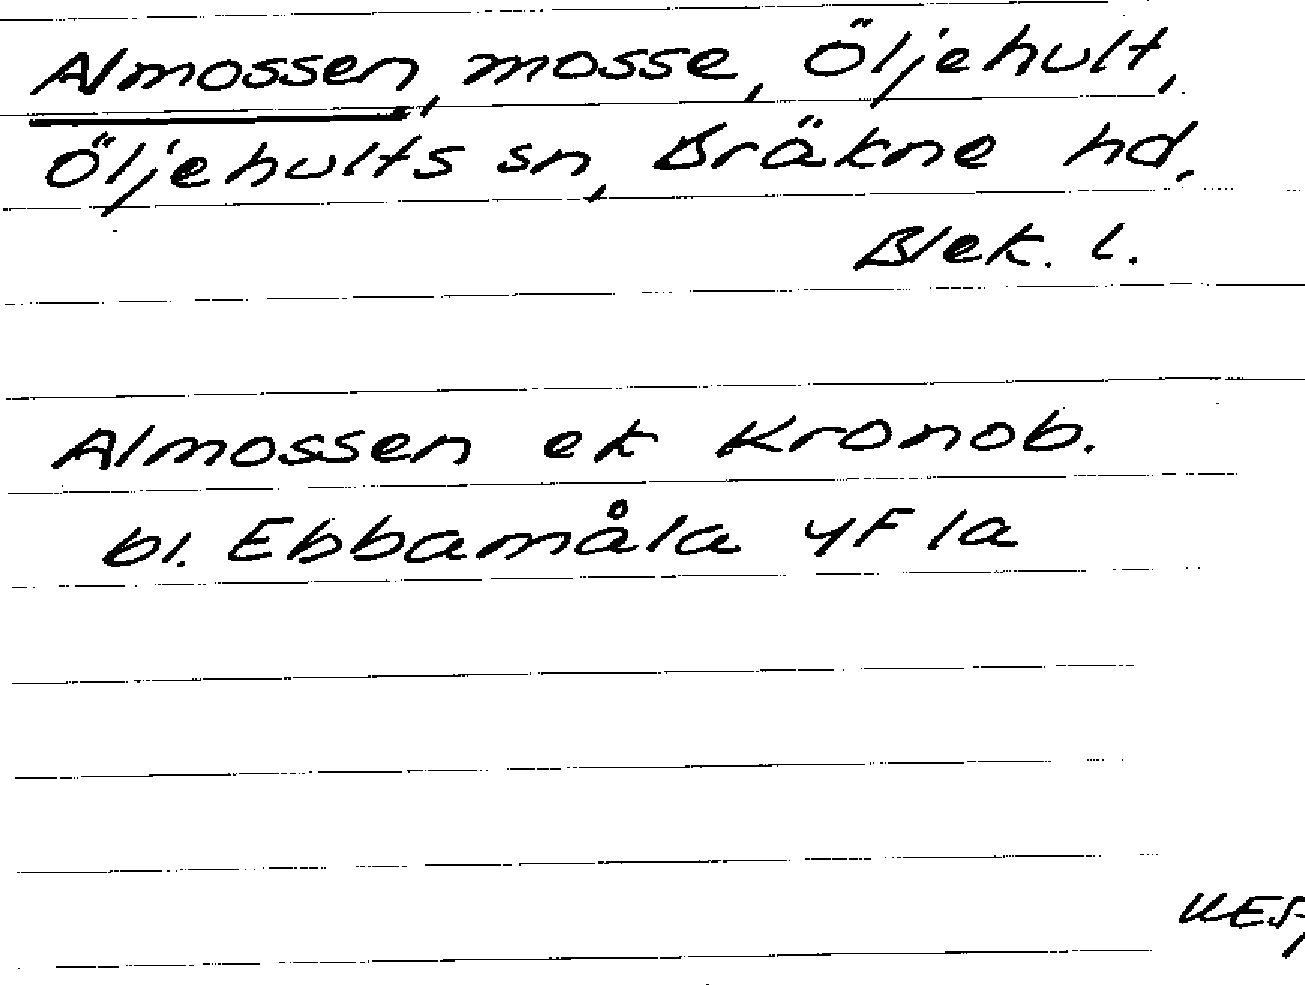 Almossen, mosse, Öljehult,
Öljehults sn, Bräkne hd.
Blek. l.
Almossen ek Kronob.
bl. Ebbamåla 4F 1a